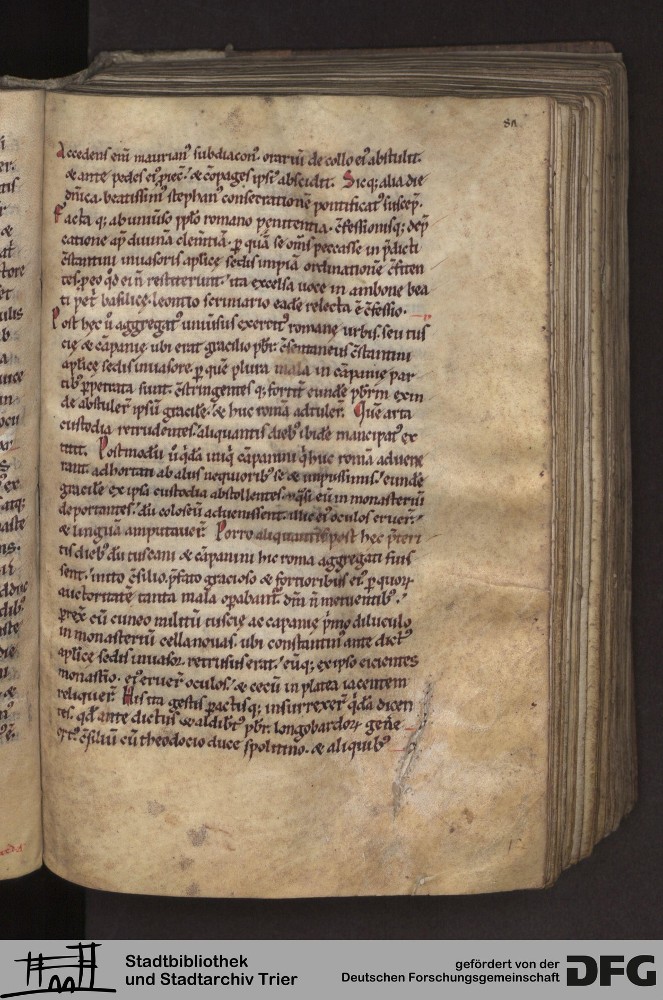 80
Accedens eni᷒ maurian᷒ subdiacon᷒. orariū de collo ei᷒ abstulit.
& ante pedes ei᷒ ꝓiec̄. & cōpages ipsi᷒ abscidit. Sicq; alia die
dn̄ica. beatissim᷒ stephan᷒ consecrationē pontificat᷒ suscep̄.
Facta q; ab uniūso pp̄lo romano penitentia. c̄fessionisq; dep̄
catione ap᷒ diuinā clem̄tiā. ꝑ quā se om̄s peccasse in p̄dicti
c̄stantini inuasoris aplicȩ sedis impiā ordinationē c̄fiten
tes. ꝓ eo qd̄ ei n̄ restiterunt. ita excelsa uoce in ambone bea
ti pet̄ basilicȩ. leontio scriniario eadē relecta ē c̄fessio.
Post hec ū aggregat᷒ uniūsus exercit᷒ romanȩ urbis. seu tus
ciȩ & cāpaniȩ. ubi erat gracilio pbr̄. c̄sentaneus c̄stantini
aplicȩ sedis inuasore. ꝑ quē plura mala in cāpaniȩ par
tib᷒ ꝑpetrata sunt. c̄stringentes q; fortit̄ eundē pbr̄m exin
de abstuler̄ ipsū gracilē. & huc romā adtuler̄. Quē arta
custodia retrudentes. aliquantis dieb᷒ ibidē mancipat᷒ ex
titit. Postmodū ū q̄dā iniq̄ cāpanini q̄ huc romā aduene
rant. adhortati ab aliis nequiorib᷒ se & impiissimis. eundē
gracilē ex ipsa custodia abstollentes. q̄si eū in monasteriū
deportantes. dū coloseū aduenissent. illic ei᷒ oculos eruer̄.
& linguā amputauer̄. Porro aliquantis post hec p̄teri
tis dieb᷒ dū tuscani & cāpanini hic roma aggregati fuis
sent. inito c̄silio. p̄fato gracioso & fortiorib᷒ ei᷒ ꝑ quoꝝ
auctoritatē tanta mala opabant᷒. dm̄ n̄ metuentib᷒.
ꝑrex̄ cū cuneo militū tusciȩ ac capaniȩ p̄mo diluculo
in monasteriū cellanouas. ubi constantin᷒ ante dict᷒
aplicȩ sedis inuasor. retrusus erat. eūq; ex ipso eicientes
monast̄io. ei᷒ eruer̄ oculos. & cecū in platea iacentem
reliquer̄. His ita gestis ꝑactisq; insurrexer̄ q̄dā dicen
tes. qd̄ ante dictus uualdibt᷒ pbr̄. longobardoꝝ genē
ort᷒. c̄siliū cū theodocio duce spolitino. & aliquib᷒
Stadtbibliothek
und Stadtarchiv Trier
gefördert von der
Deutschen Forschungsgemeinschaft
DFG